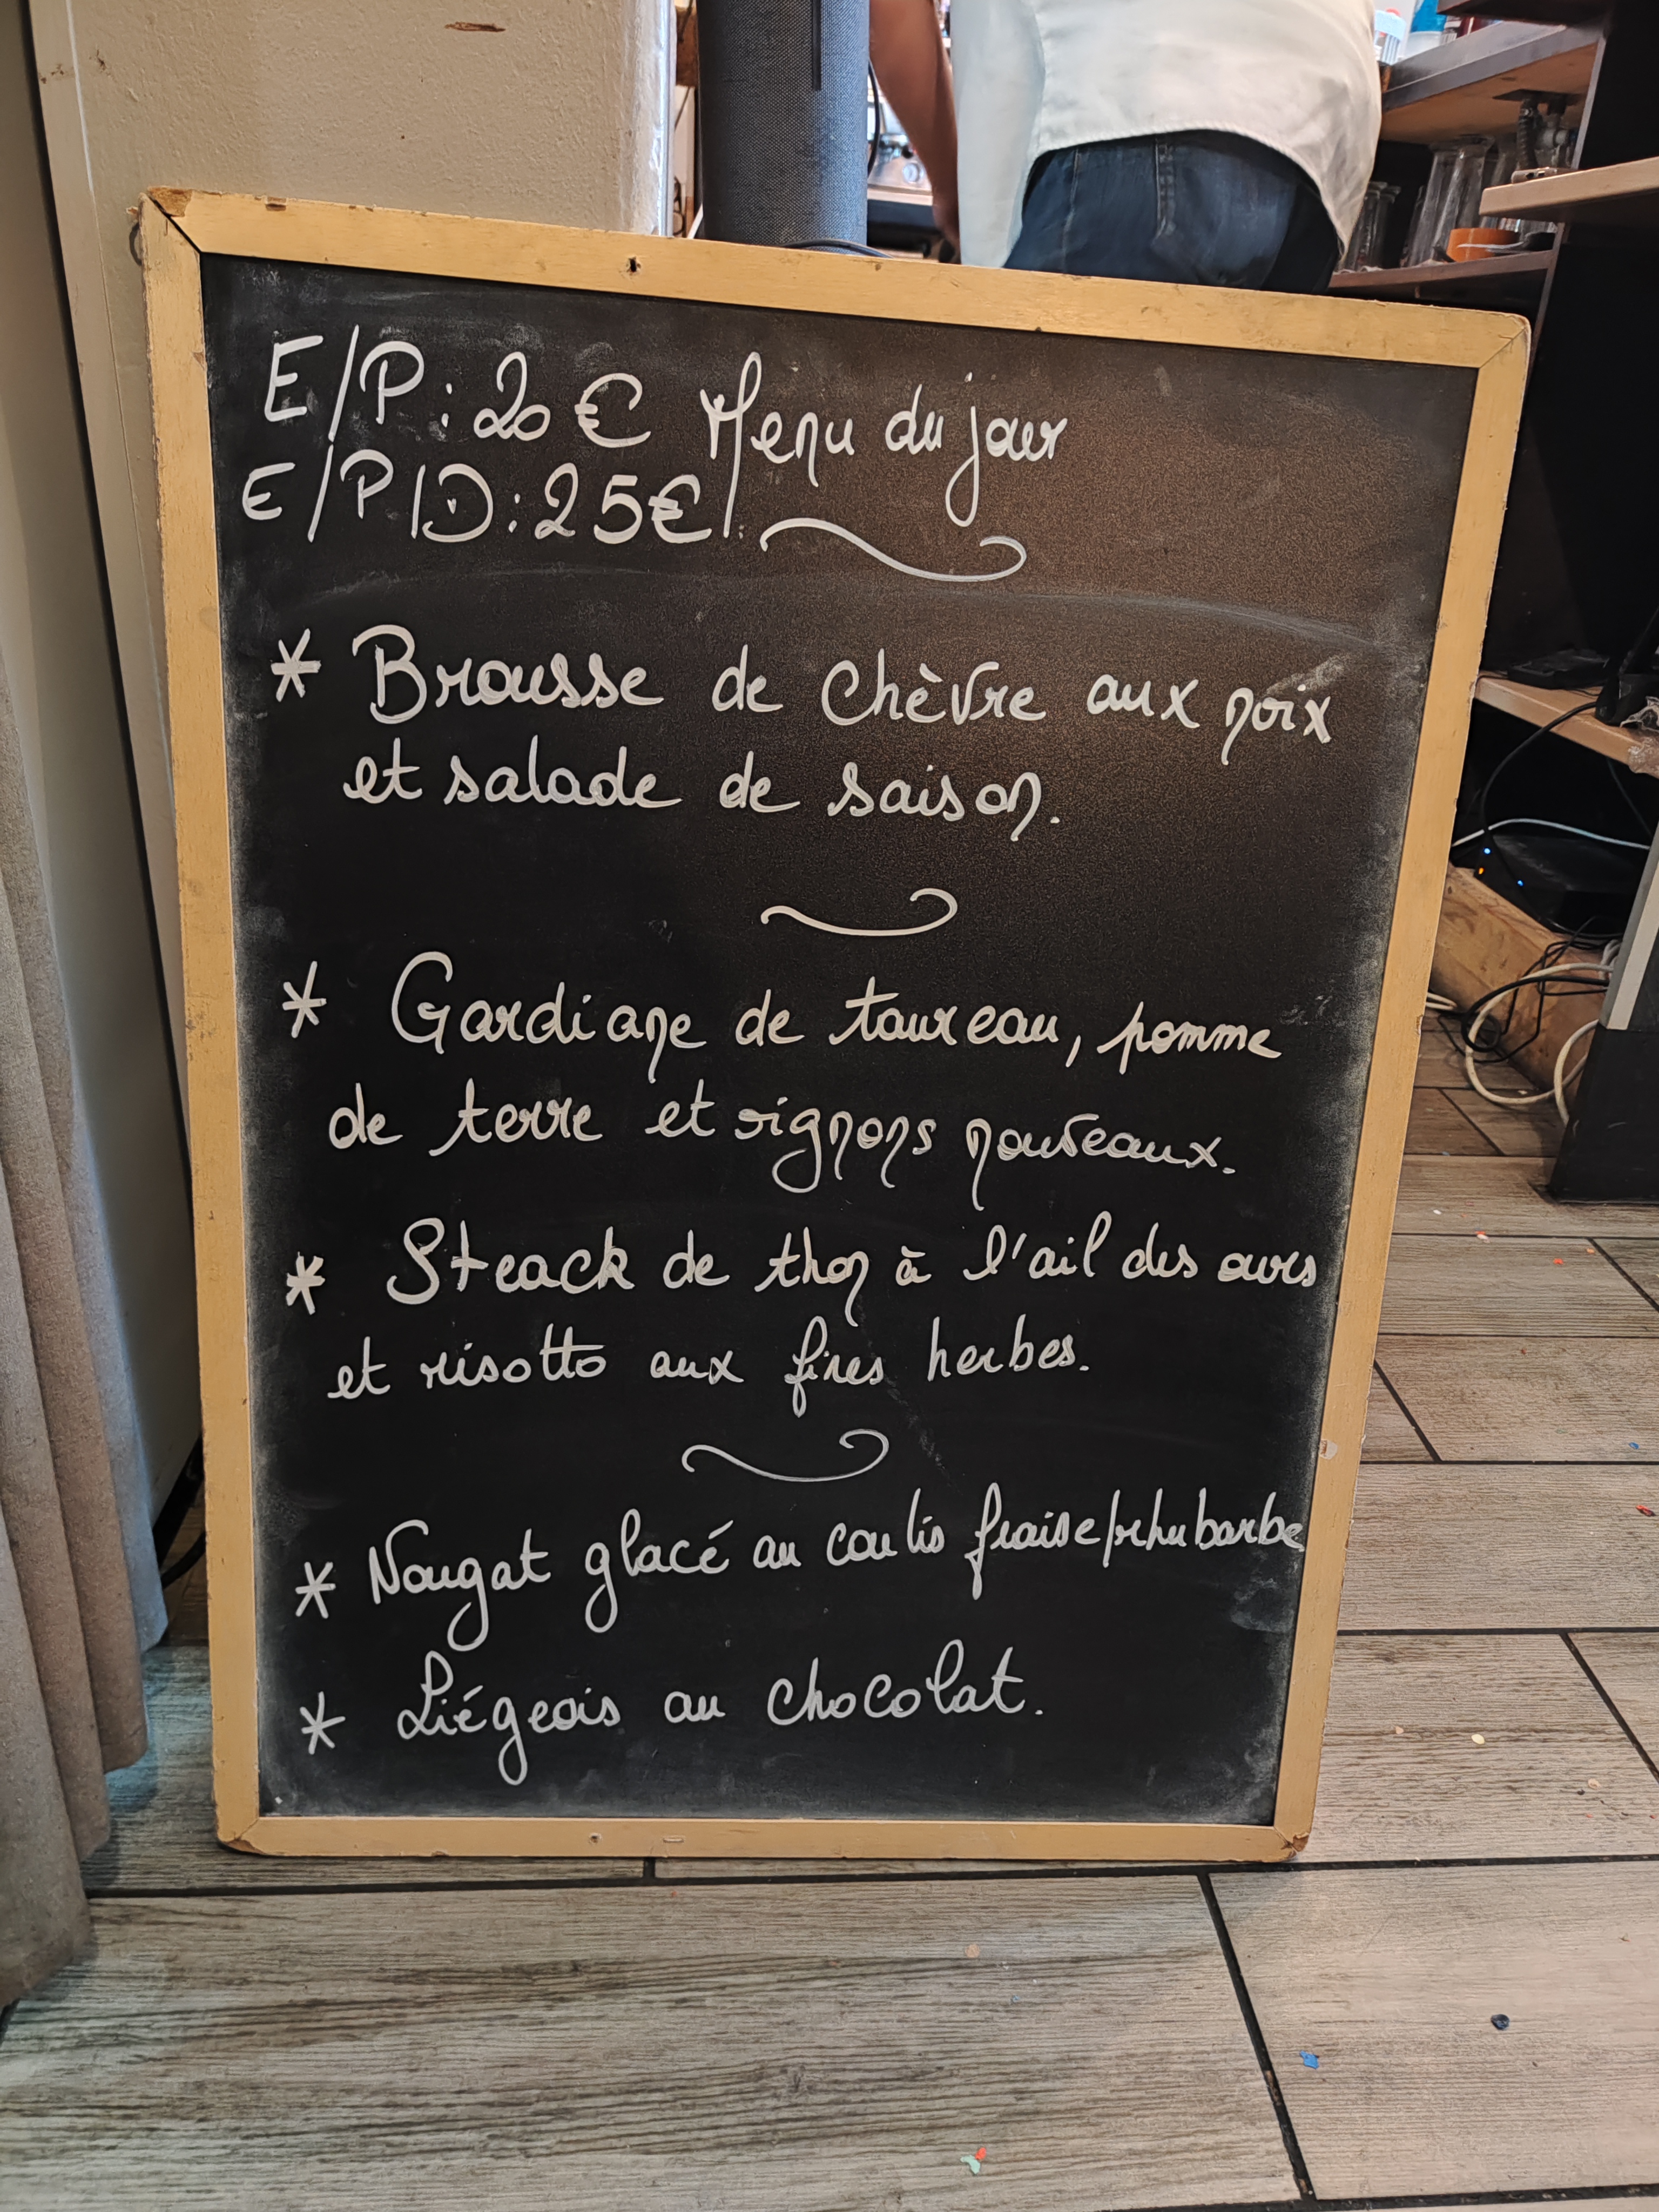 E/P : 20 € Menu du jour
E/P/D : 25€
* Brousse de chèvre aux noix
et salade de saison.
* Gardiane de taureau, pomme
de terre et oignons nouveaux.
* Steack de thon à l'ail des ours
et risotto aux fines herbes.
* Nougat glacé au coulis fraise/rhubarbe
* Liégeois au chocolat.